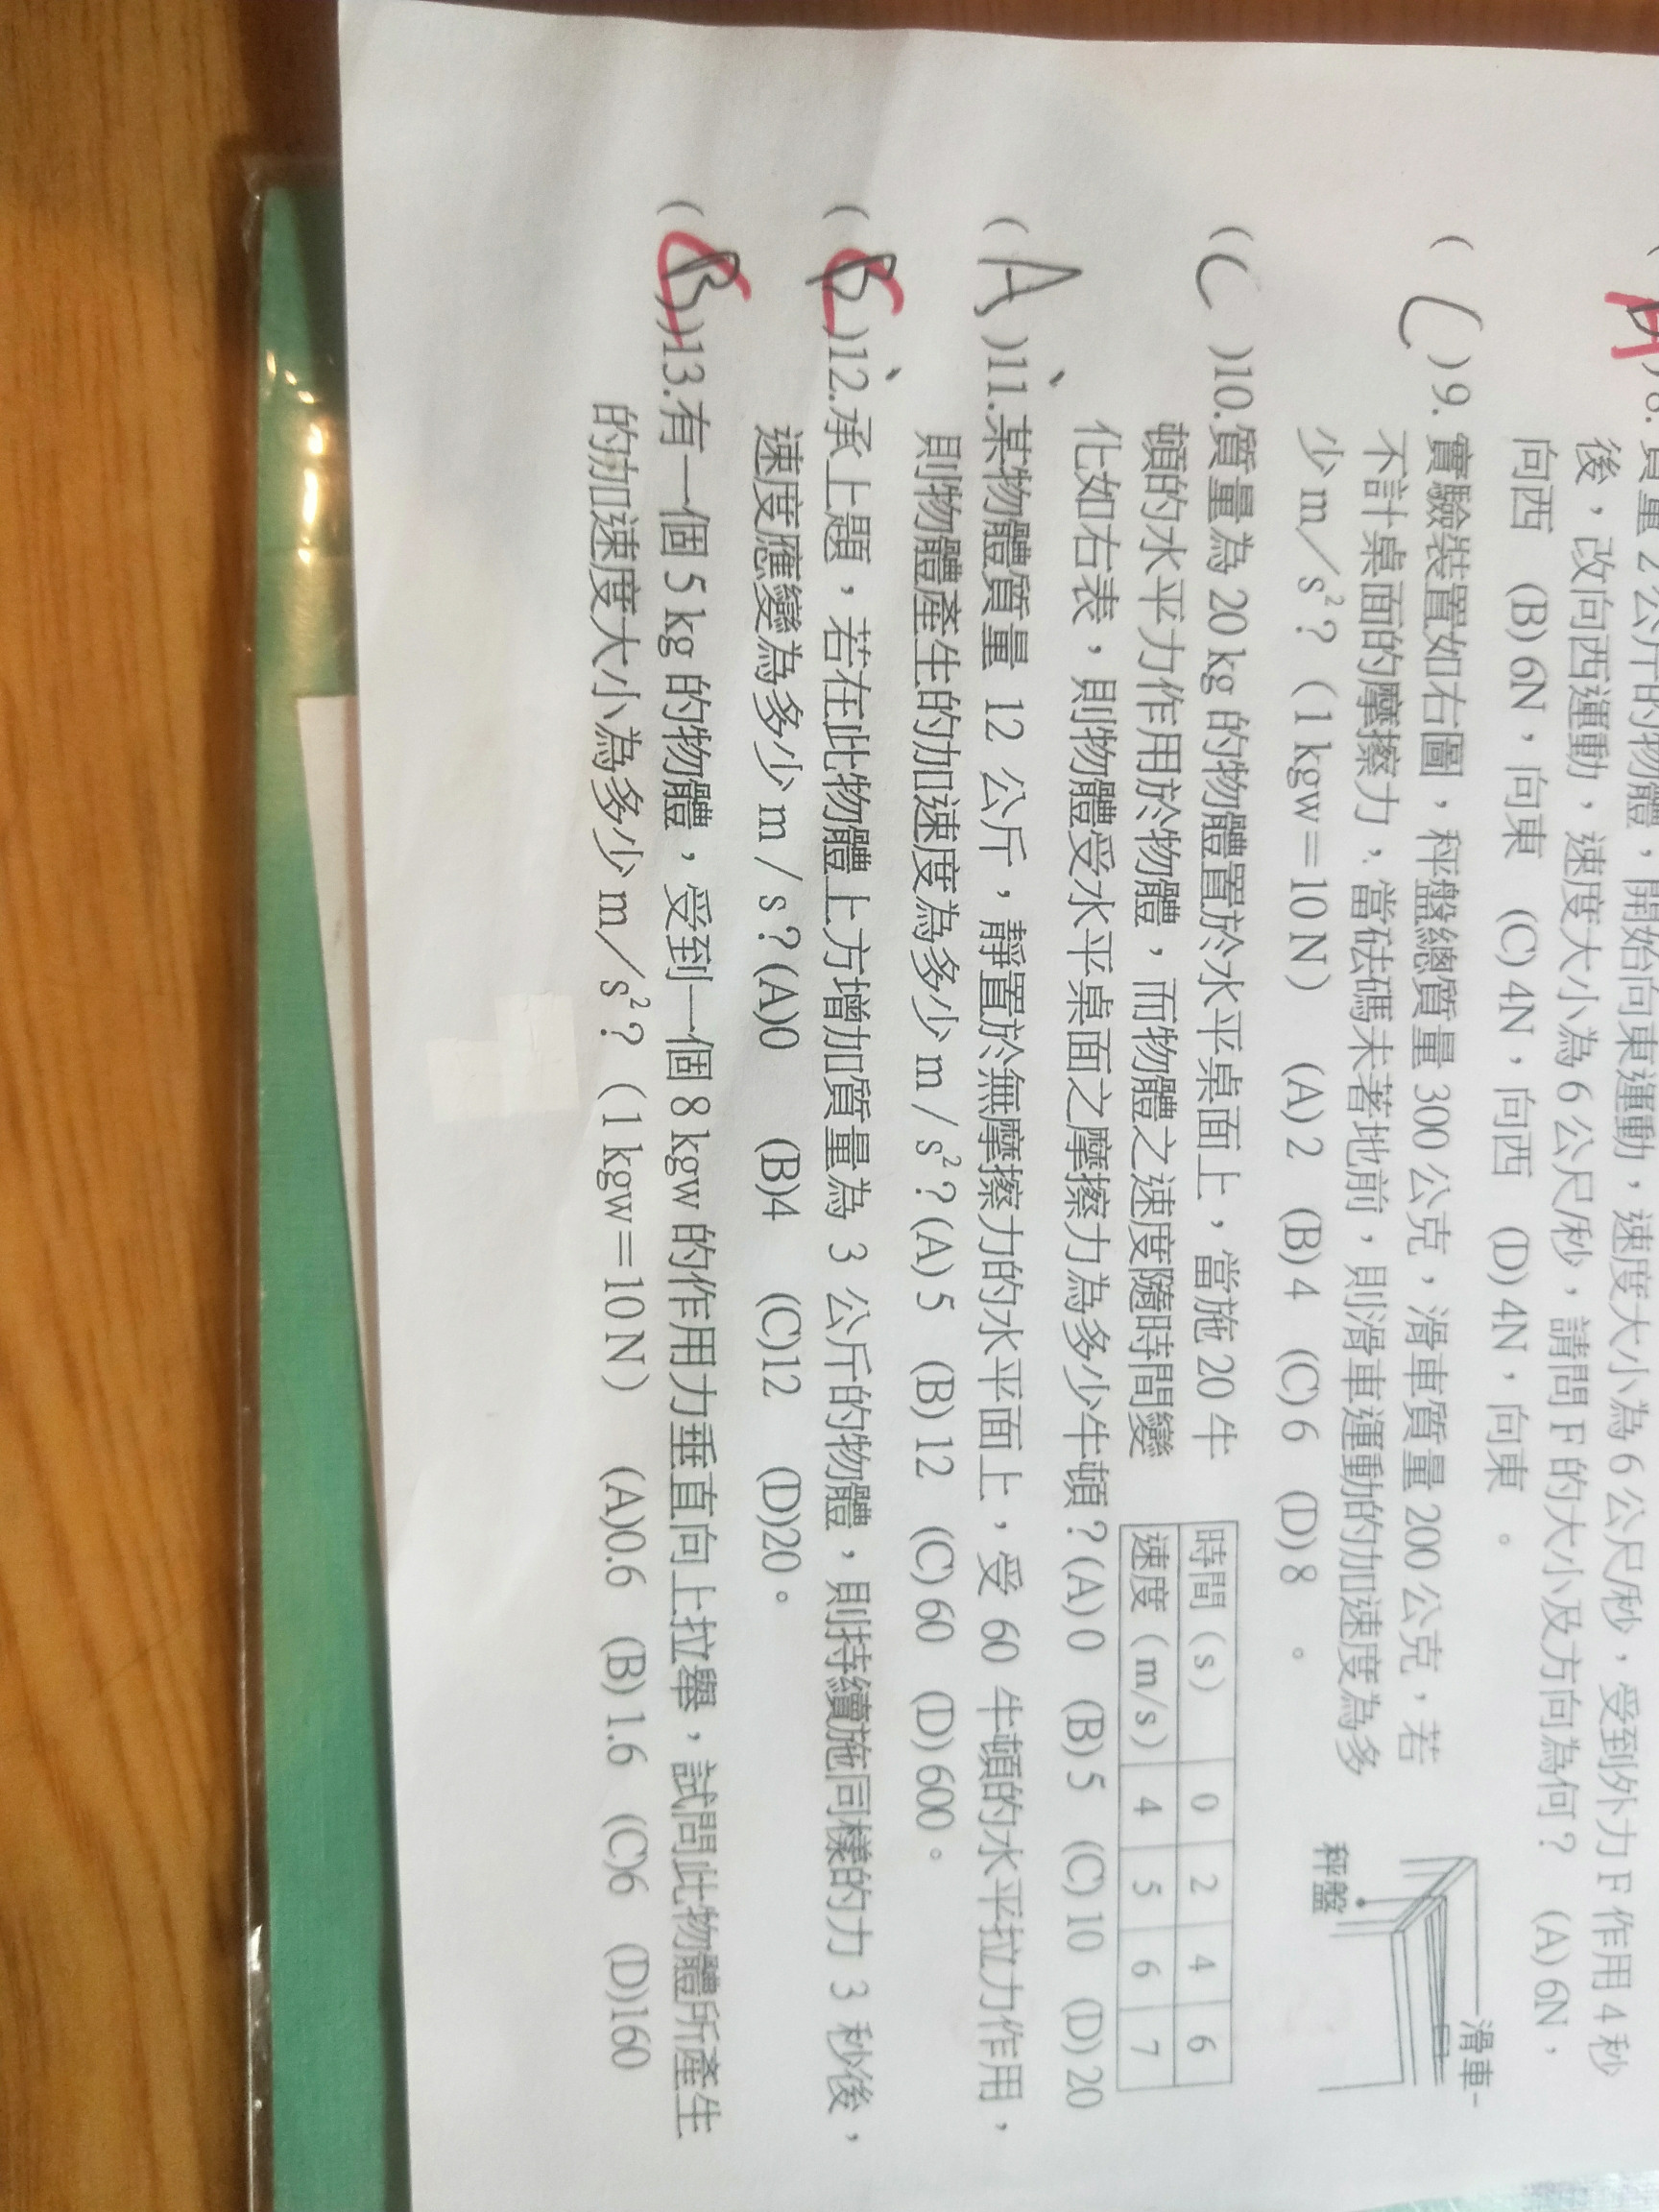 )8.質量2公斤的物體，開始向東運動，速度大小為6公尺/秒，受到外力F作用4秒
後，改向西運動，速度大小為6公尺/秒，請問F的大小及方向為何？ (A) 6N，
向西 (B) 6N，向東 (C) 4N，向西 (D) 4N，向東 。
( C )9. 實驗裝置如右圖，秤盤總質量300公克，滑車質量200公克，若
不計桌面的摩擦力，當砝碼未著地前，則滑車運動的加速度為多
少m／s²？（1 kgw＝10 N） (A) 2 (B) 4 (C) 6 (D) 8 。
滑車
秤盤
( C )10.質量為20 kg的物體置於水平桌面上，當施20牛
頓的水平力作用於物體，而物體之速度隨時間變
化如右表，則物體受水平桌面之摩擦力為多少牛頓？(A) 0 (B) 5 (C) 10 (D) 20
時間（s） 0 2 4 6
速度（m/s） 4 5 6 7
( A )11.某物體質量 12 公斤，靜置於無摩擦力的水平面上，受 60 牛頓的水平拉力作用，
則物體產生的加速度為多少 m / s²？(A) 5 (B) 12 (C) 60 (D) 600。
( B C )12.承上題，若在此物體上方增加質量為 3 公斤的物體，則持續施同樣的力 3 秒後，
速度應變為多少 m / s？(A)0 (B)4 (C)12 (D)20。
( B C )13.有一個5 kg的物體，受到一個8 kgw的作用力垂直向上拉舉，試問此物體所產生
的加速度大小為多少m／s²？（1 kgw＝10 N） (A)0.6 (B) 1.6 (C)6 (D)160